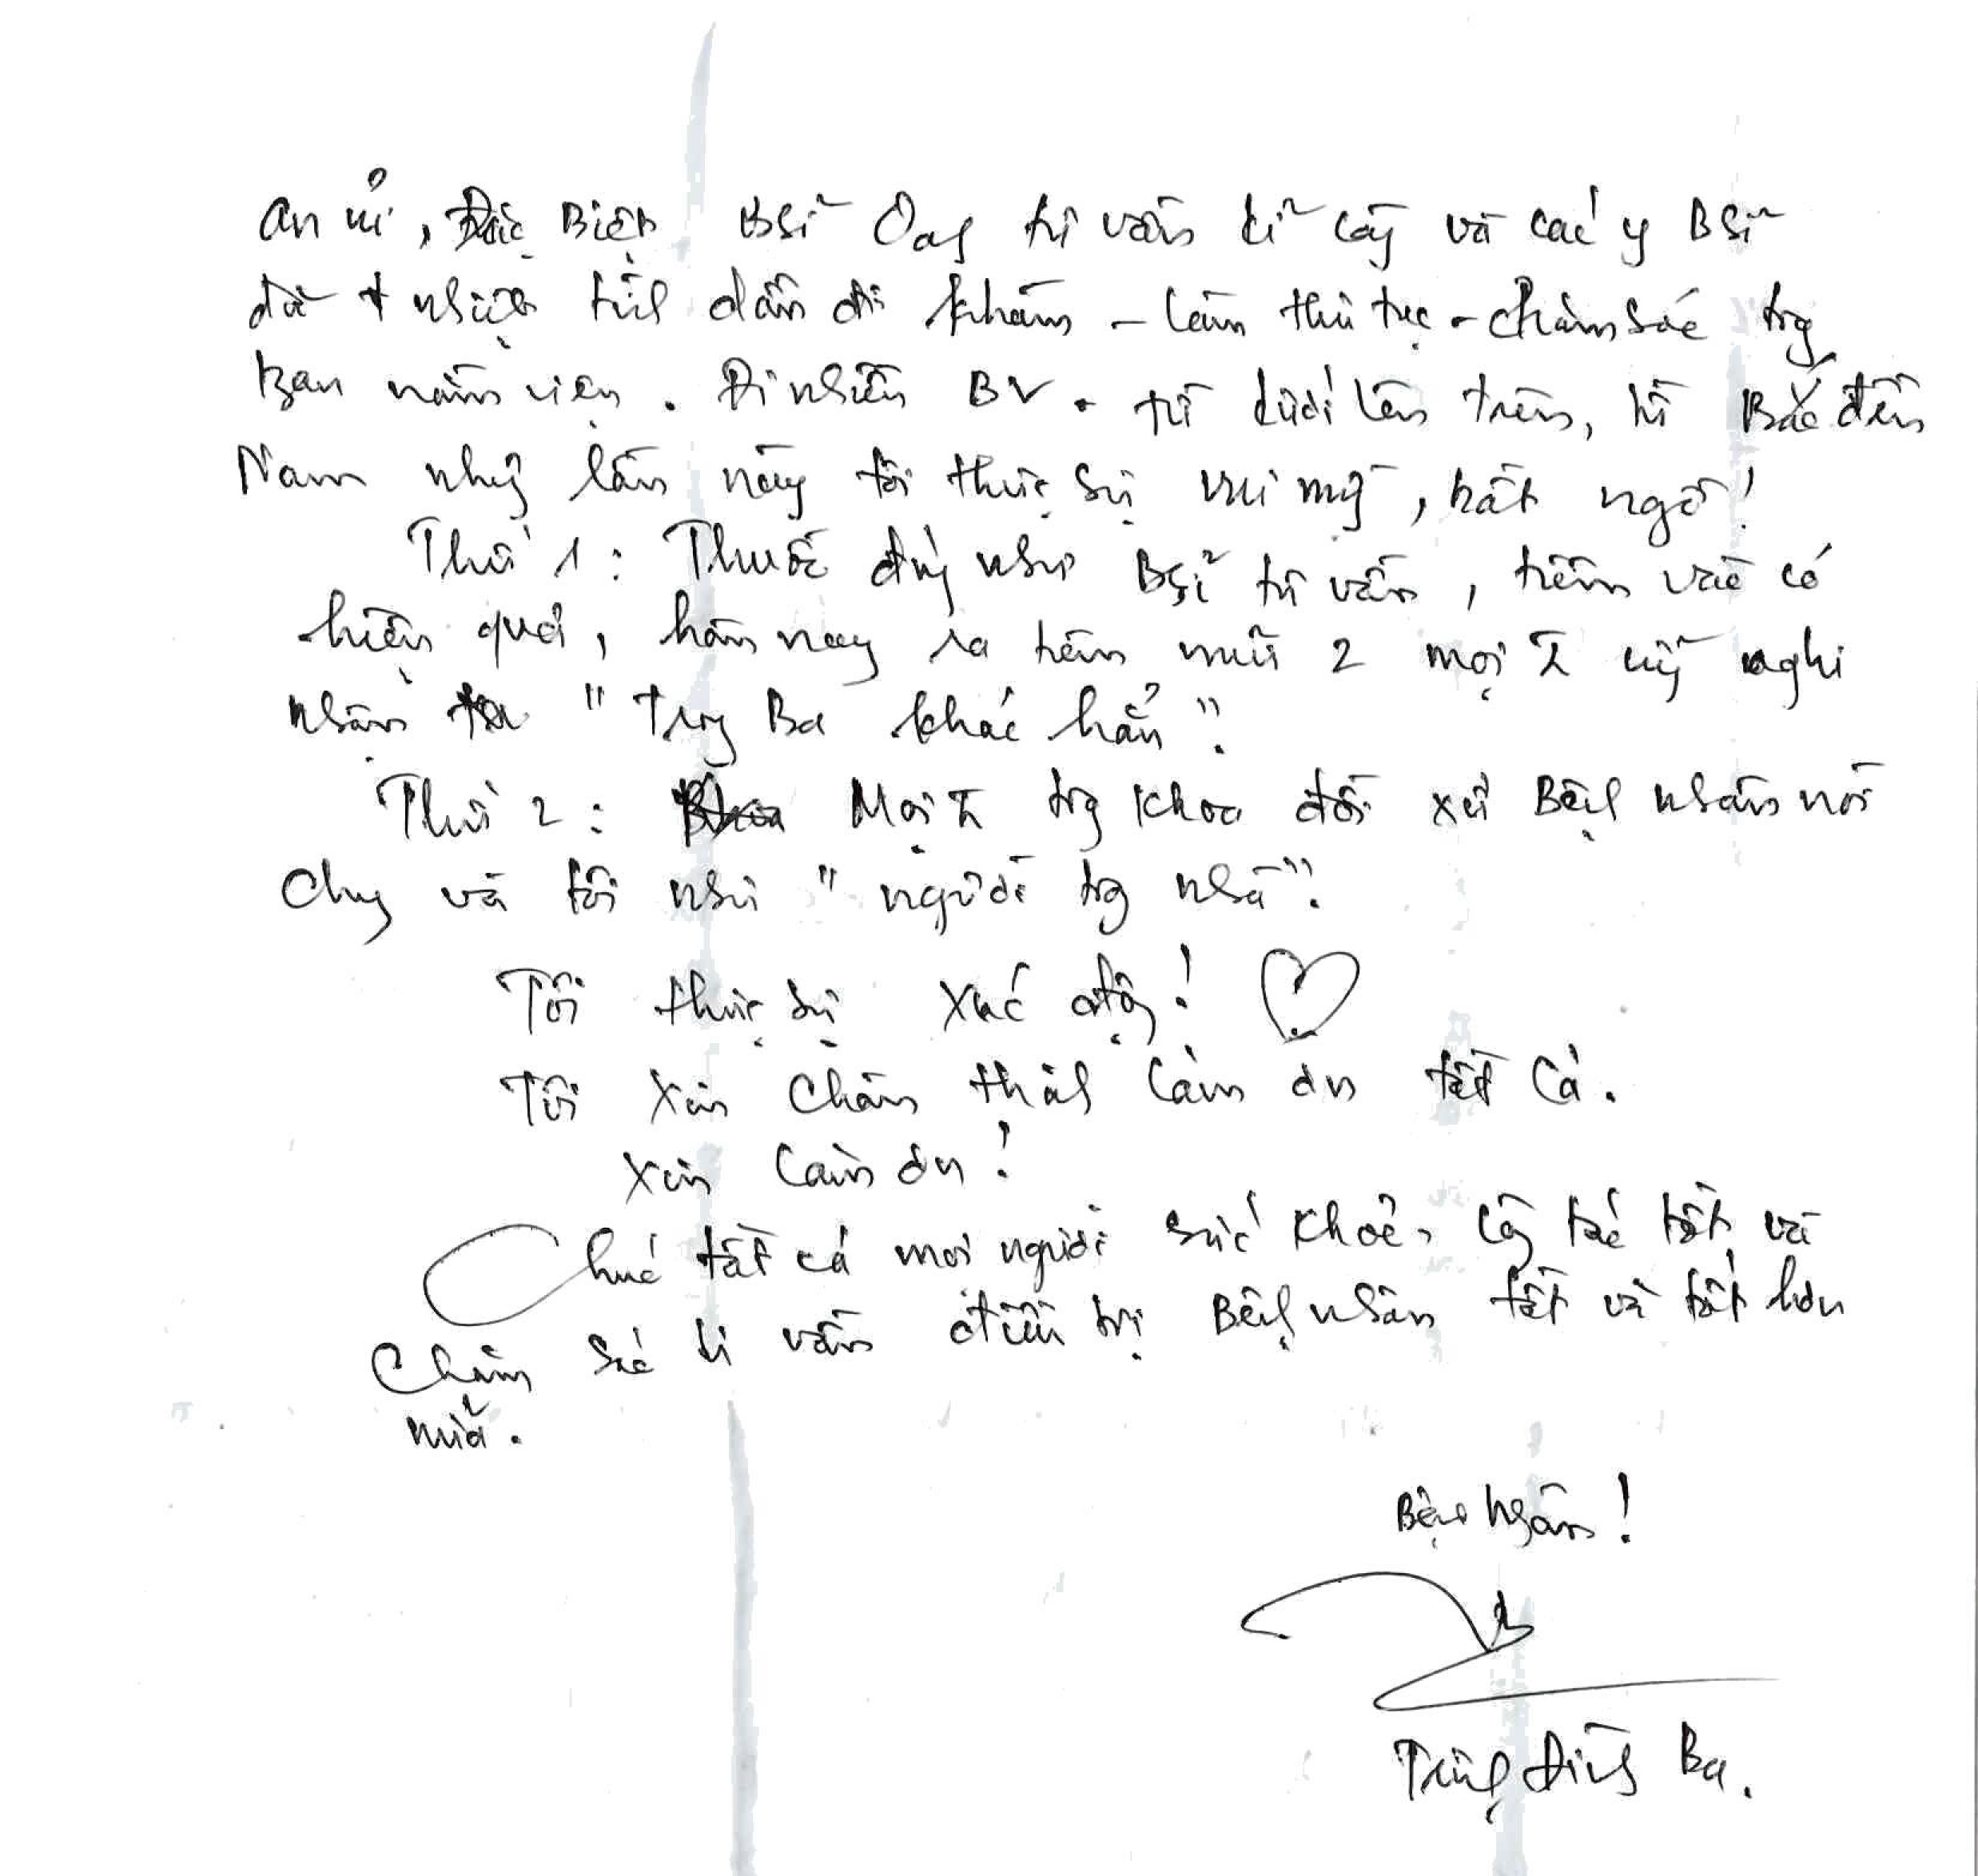 an ủi, Đặc Biệt Bsĩ Oag tư vấn kĩ cãg và các y Bsĩ
đã nhiệt tìh dẫn đi khám - làm thủ tục - chăm sóc trg
nằm viện. Đi nhiều BV. từ dưới lên trên, từ Bắc đến
Nam nhưg lần này tôi thực sự vui mừg, bất ngờ!
Thứ 1: Thuốc đúg như Bsĩ tư vấn, tiêm vào có
hiệu quả, hôm nay ra tiêm mũi 2 mọi nghi
nhận "Trôg Ba khác hẳn".
Thứ 2: Mọi trg khoa đối xử Bệh nhân nói
chug và tôi như "người trg nhà".
Tôi thực sự xúc độg!
Tôi xin chân thàh cảm ơn tất cả.
Xin cảm ơn!
Chúc tất cả mọi người sức khoẻ, côg tác tốt và
chăm sóc tư vấn điều trị Bệh nhân tốt và tốt hơn
nữa.
Bệh nhân!
Ba.